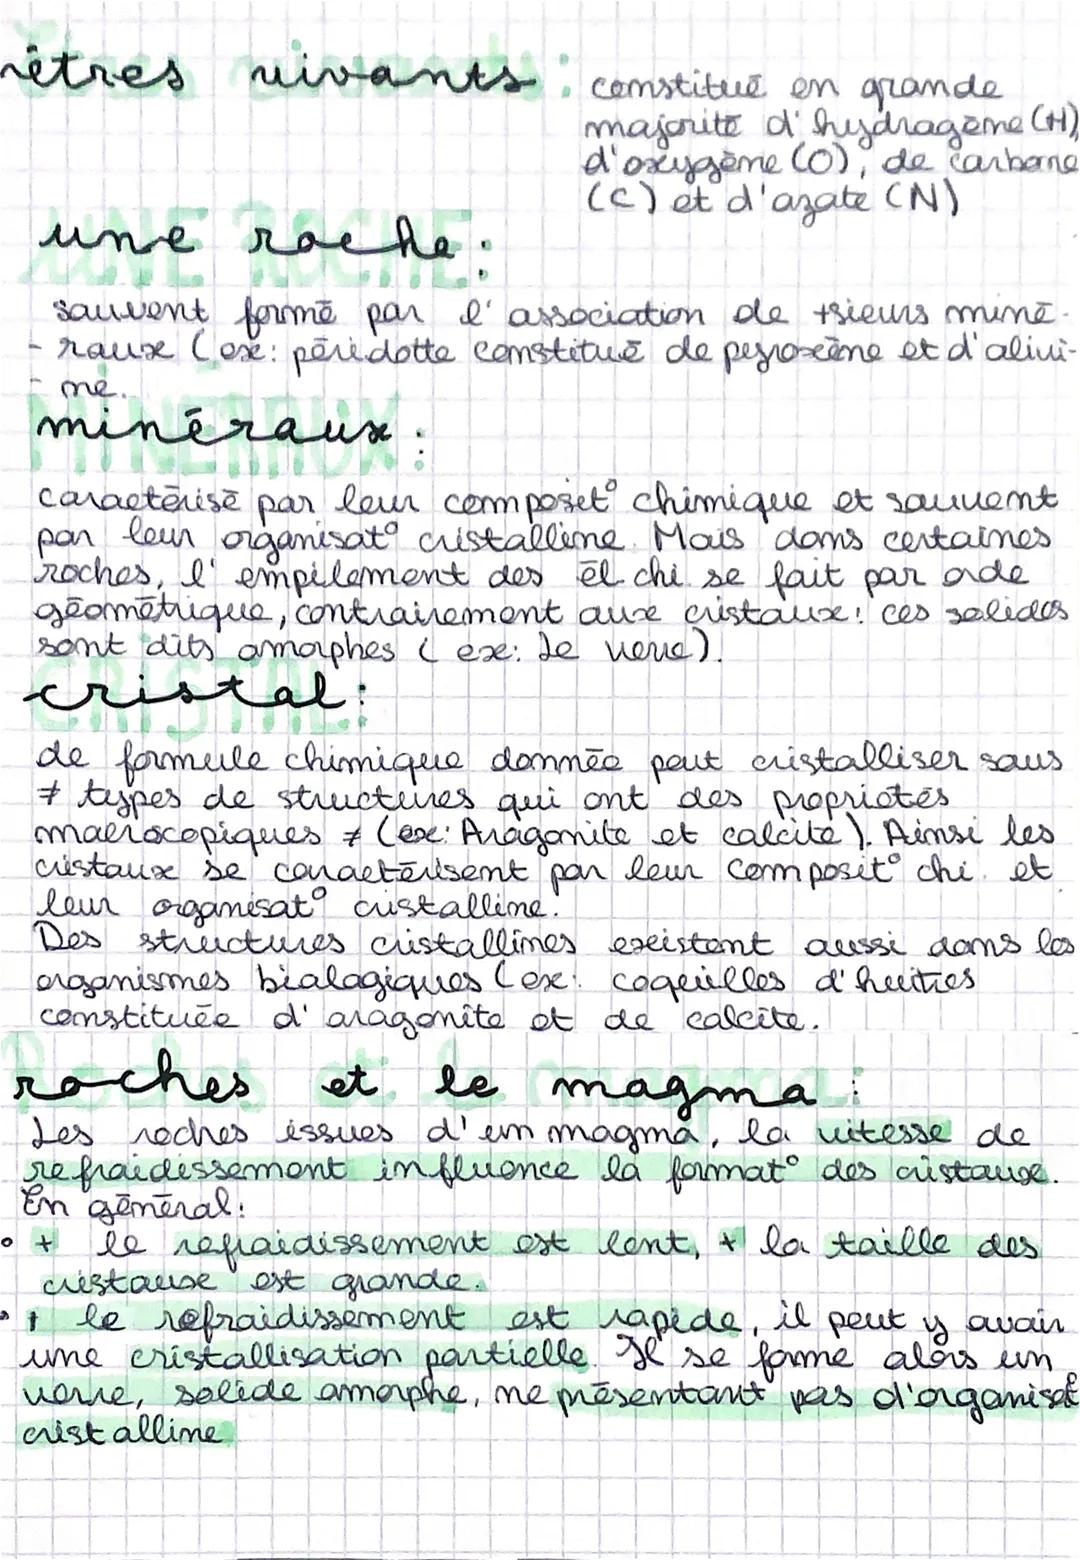 êtres vivants :
constitué en grande
majorité d'hydrogène (H),
d'oxygène (O), de carbone
(C) et d'azote (N)
une roche :
souvent formé par l'association de +sieurs miné-
-raux (ex: péridotte constitué de pyroxène et d'olivi-
- ne.
minéraux :
caractérisé par leur composit° chimique et souvent
par leur organisat° cristalline. Mais dans certaines
roches, l'empilement des él. chi. se fait par
géométrique, contrairement aux cristaux: ces solides
sont dits amorphes (ex: Le verre).
cristal :
de formule chimique donnée peut cristalliser sous
≠ types de structures qui ont des propriétés
macrocopiques ≠ (ex: Aragonite et calcite). Ainsi les
cristaux se caractérisent par leur composit° chi. et
leur organisat° cristalline.
Des structures cristallines existent aussi dans les
organismes biologiques (ex: coquilles d'huîtres
constituée d'aragonite et de calcite.
roches et le magma :
Les roches issues d'un magma, la vitesse de
refroidissement influence la format° des cristaux.
En général:
° + le refroidissement est lent, + la taille des
cristaux est grande.
° + le refroidissement est rapide, il peut y avoir
une cristallisation partielle. Il se forme alors un
verre, solide amorphe, ne présentant pas d'organisat°
cristalline